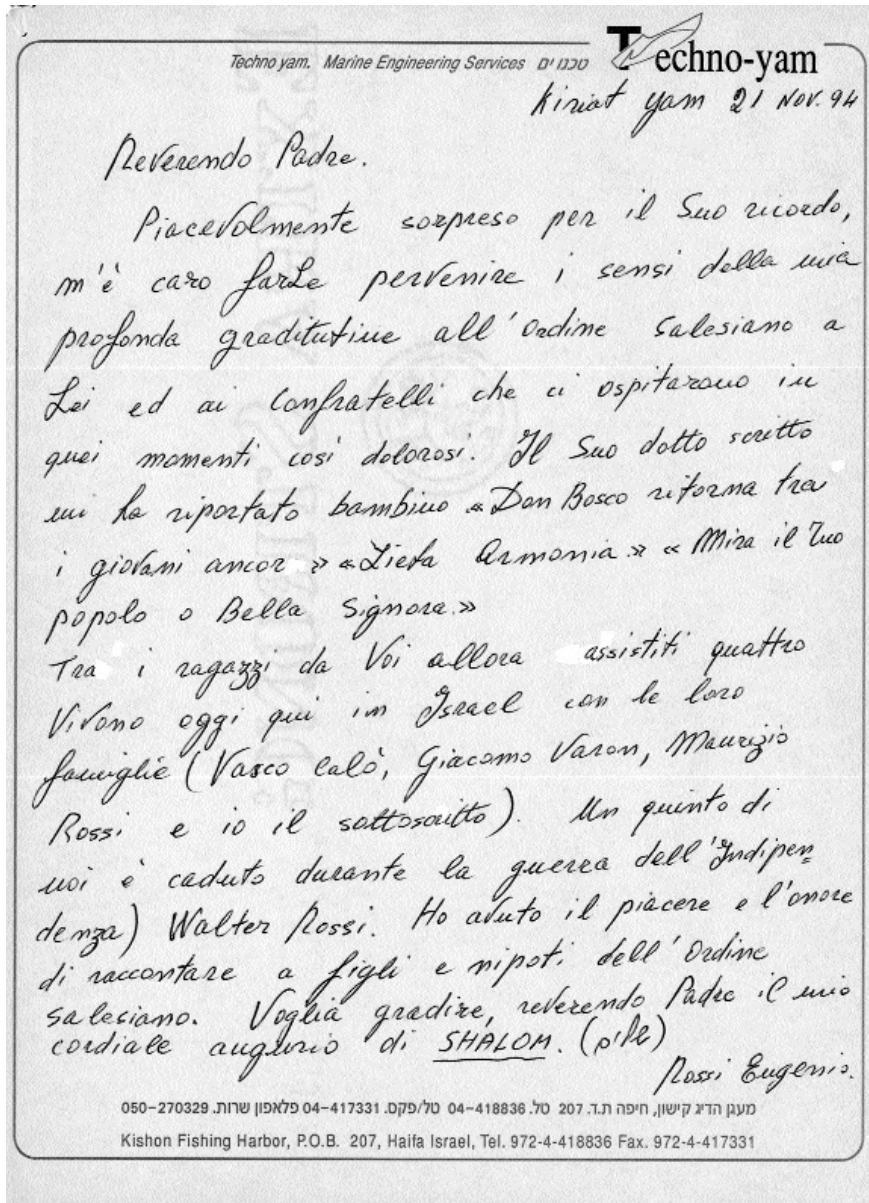 Techno yam. Marine Engineering Services טכנו ים
Techno-yam
Kiriat Yam 21 NOV. 94
Reverendo Padre.
Piacevolmente sorpreso per il Suo ricordo,
m'è caro farLe pervenire i sensi della mia
profonda graditutine all'Ordine Salesiano a
Lei ed ai Confratelli che ci ospitarono in
quei momenti così dolorosi. Il Suo dotto scritto
mi ha riportato bambino «Don Bosco ritorna tra
i giovani ancor» «Lieta Armonia» «Mira il Tuo
popolo o Bella Signora.»
Tra i ragazzi da Voi allora assistiti quattro
Vivono oggi qui in Israel con le loro
famiglie (Vasco Calò, Giacomo Varon, Maurizio
Rossi e io il sottoscritto). Un quinto di
noi è caduto durante la guerra dell'Indipen=
denza) Walter Rossi. Ho avuto il piacere e l'onore
di raccontare a figli e nipoti dell'Ordine
salesiano. Voglia gradire, reverendo Padre il mio
cordiale augurio di SHALOM. (שלום)
Rossi Eugenio.
מעגן הדיג קישון, חיפה ת.ד. 207 טל. 04-418836 טל/פקס. 04-417331 פלאפון שרות. 050-270329
Kishon Fishing Harbor, P.O.B. 207, Haifa Israel, Tel. 972-4-418836 Fax. 972-4-417331